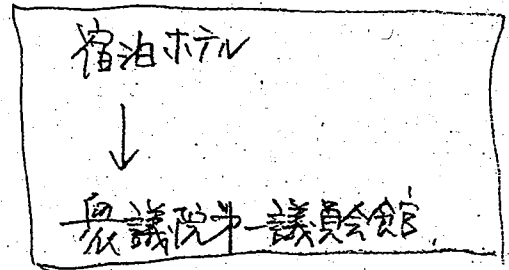 宿泊ホテル
↓
衆議院第一議員会館